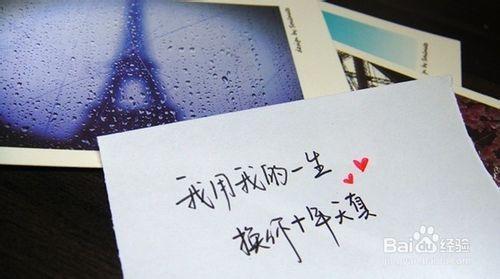 我用我的一生
换你十年天真
Baidu经验
jingyan.baidu.com